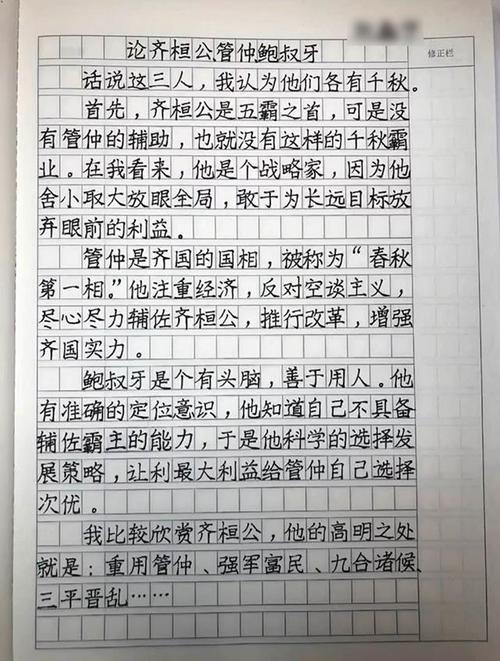 修正栏
论齐桓公、管仲、鲍叔牙
话说这三人，我认为他们各有千秋。
首先，齐桓公是五霸之首，可是没
有管仲的辅助，也就没有这样的千秋霸
业。在我看来，他是个战略家，因为他
舍小取大放眼全局，敢于为长远目标放
弃眼前的利益。
管仲是齐国的国相，被称为“春秋
第一相”。他注重经济，反对空谈主义，
尽心尽力辅佐齐桓公，推行改革，增强
齐国实力。
鲍叔牙是个有头脑，善于用人。他
有准确的定位意识，他知道自己不具备
辅佐霸主的能力，于是他科学的选择发
展策略，让利最大利益给管仲自己选择
次优。
我比较欣赏齐桓公，他的高明之处
就是：重用管仲、强军富民、九合诸候、
三平晋乱……